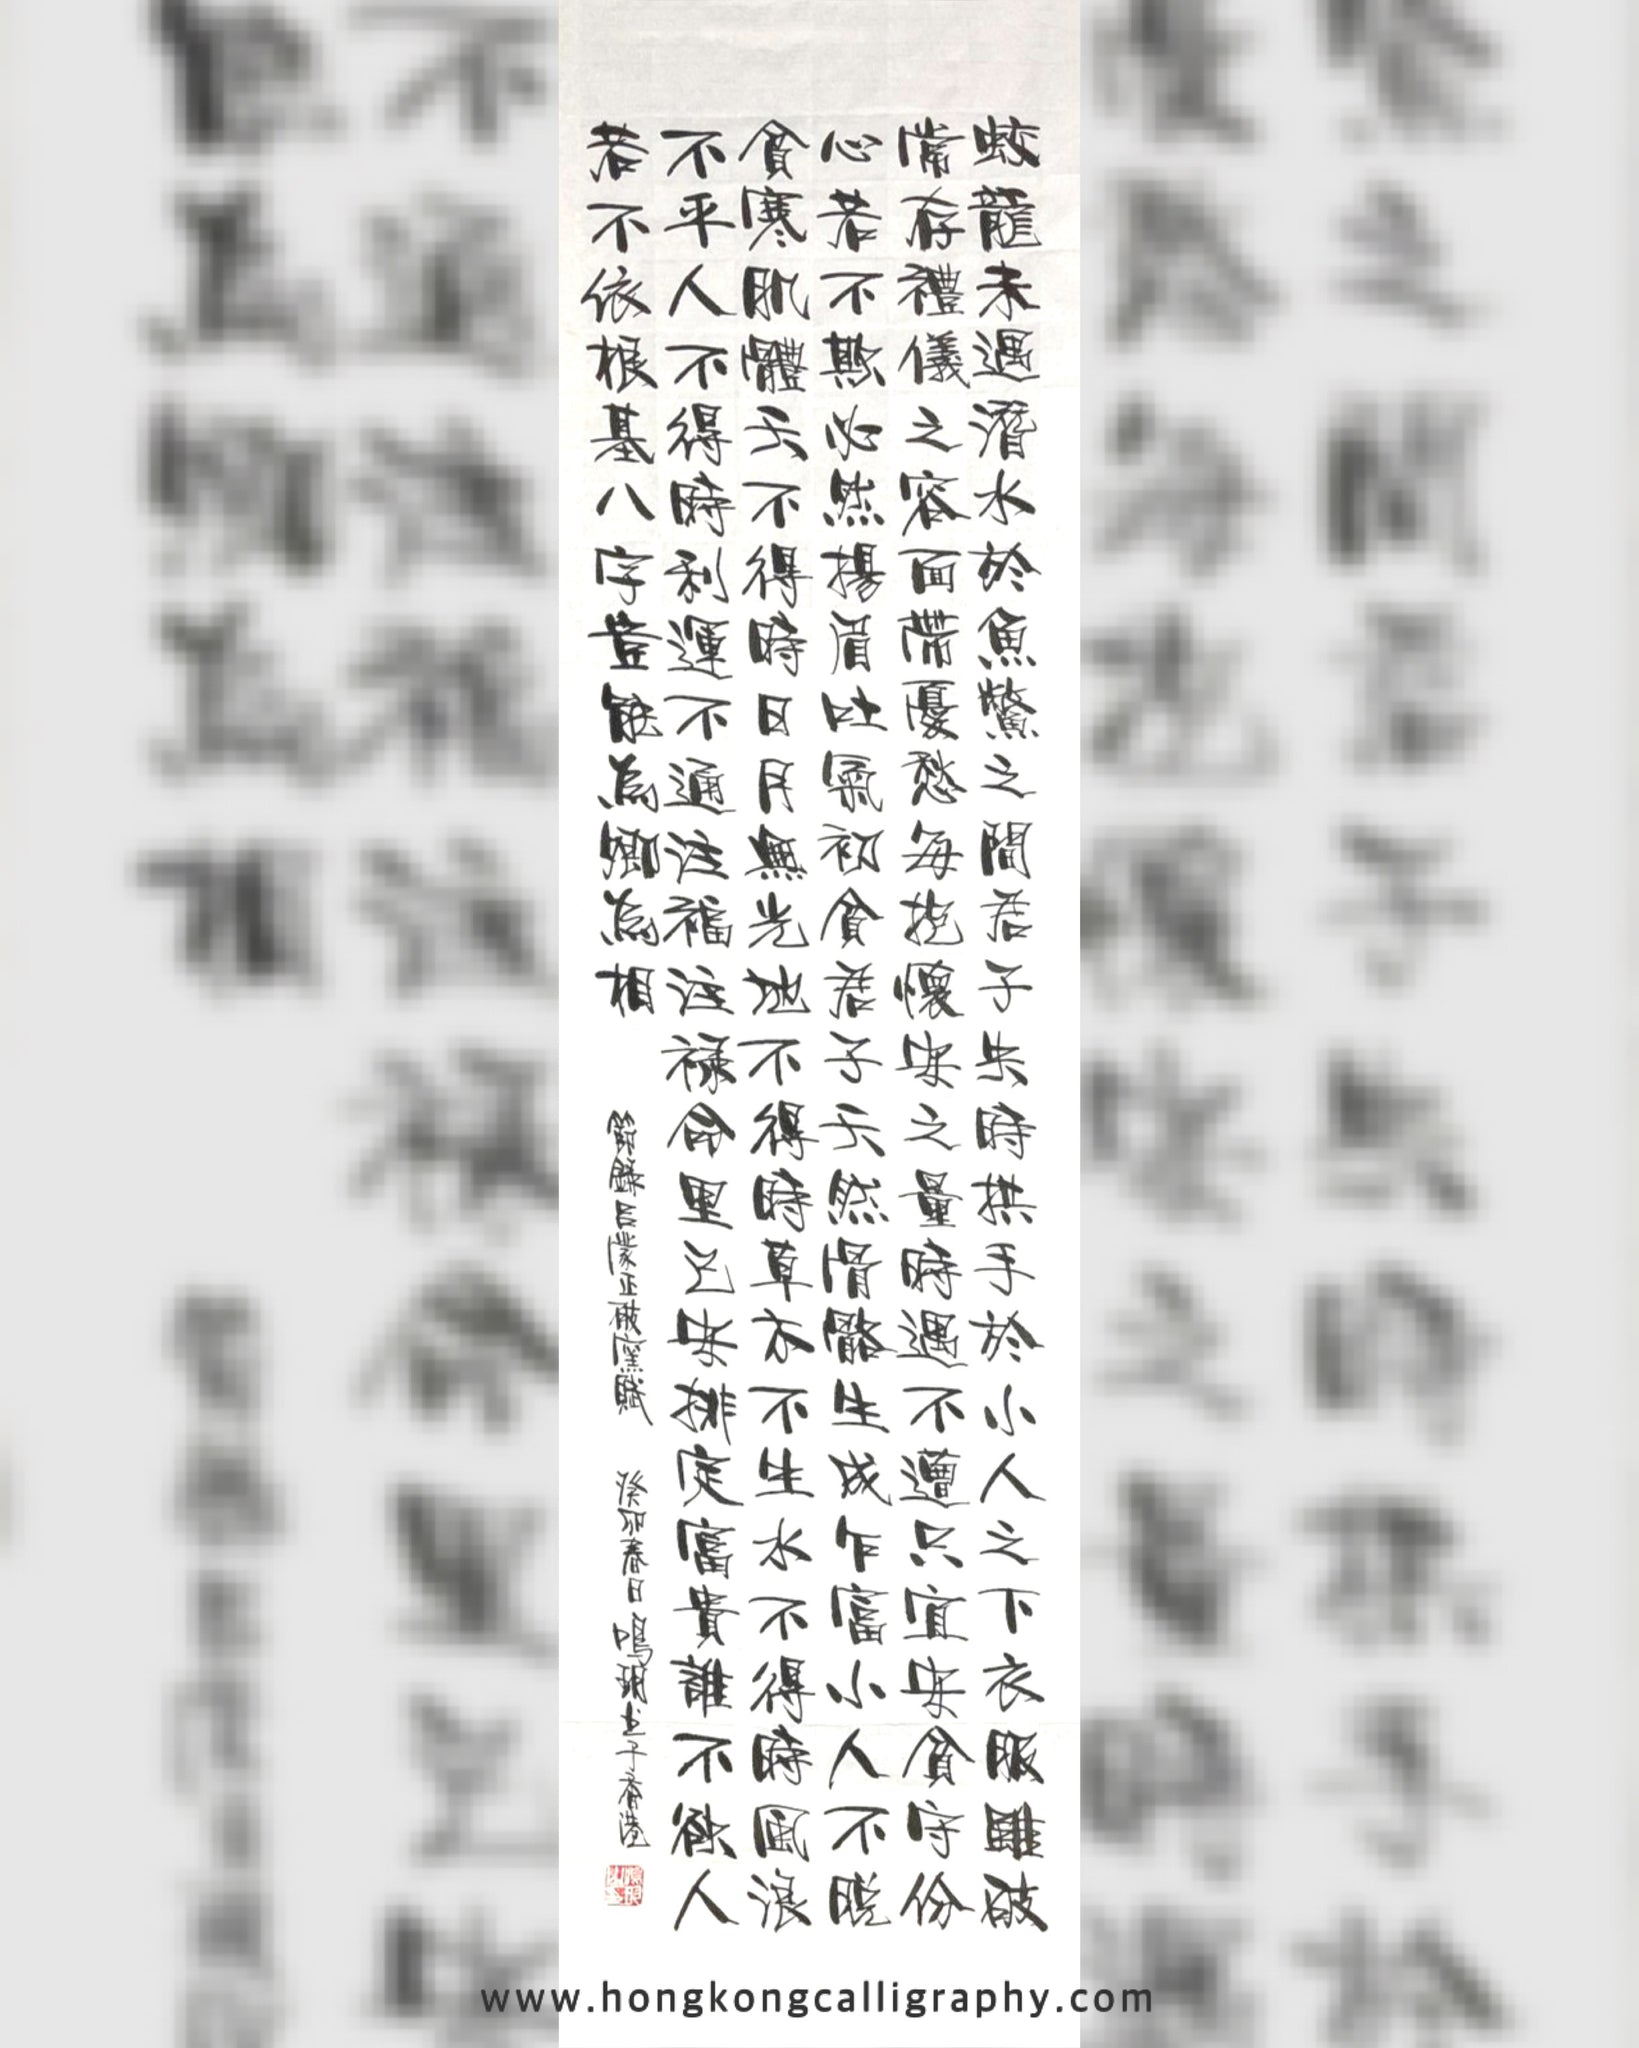 蛟龍未遇潛水於魚鱉之間君子失時拱手於小人之下衣服雖破
常存禮儀之容面帶憂愁每抱懷安之量時遇不遭只宜安貧守份
心若不欺必然揚眉吐氣初貧君子天然骨骼生成乍富小人不脫
貧寒肌體天不得時日月無光地不得時草木不生水不得時風浪
不平人不得時利運不通注福注祿命里已安排定富貴誰不欲人
若不依根基八字豈能為卿為相
節錄呂蒙正破窯賦 癸卯春日鳴玥書于香港
www.hongkongcalligraphy.com